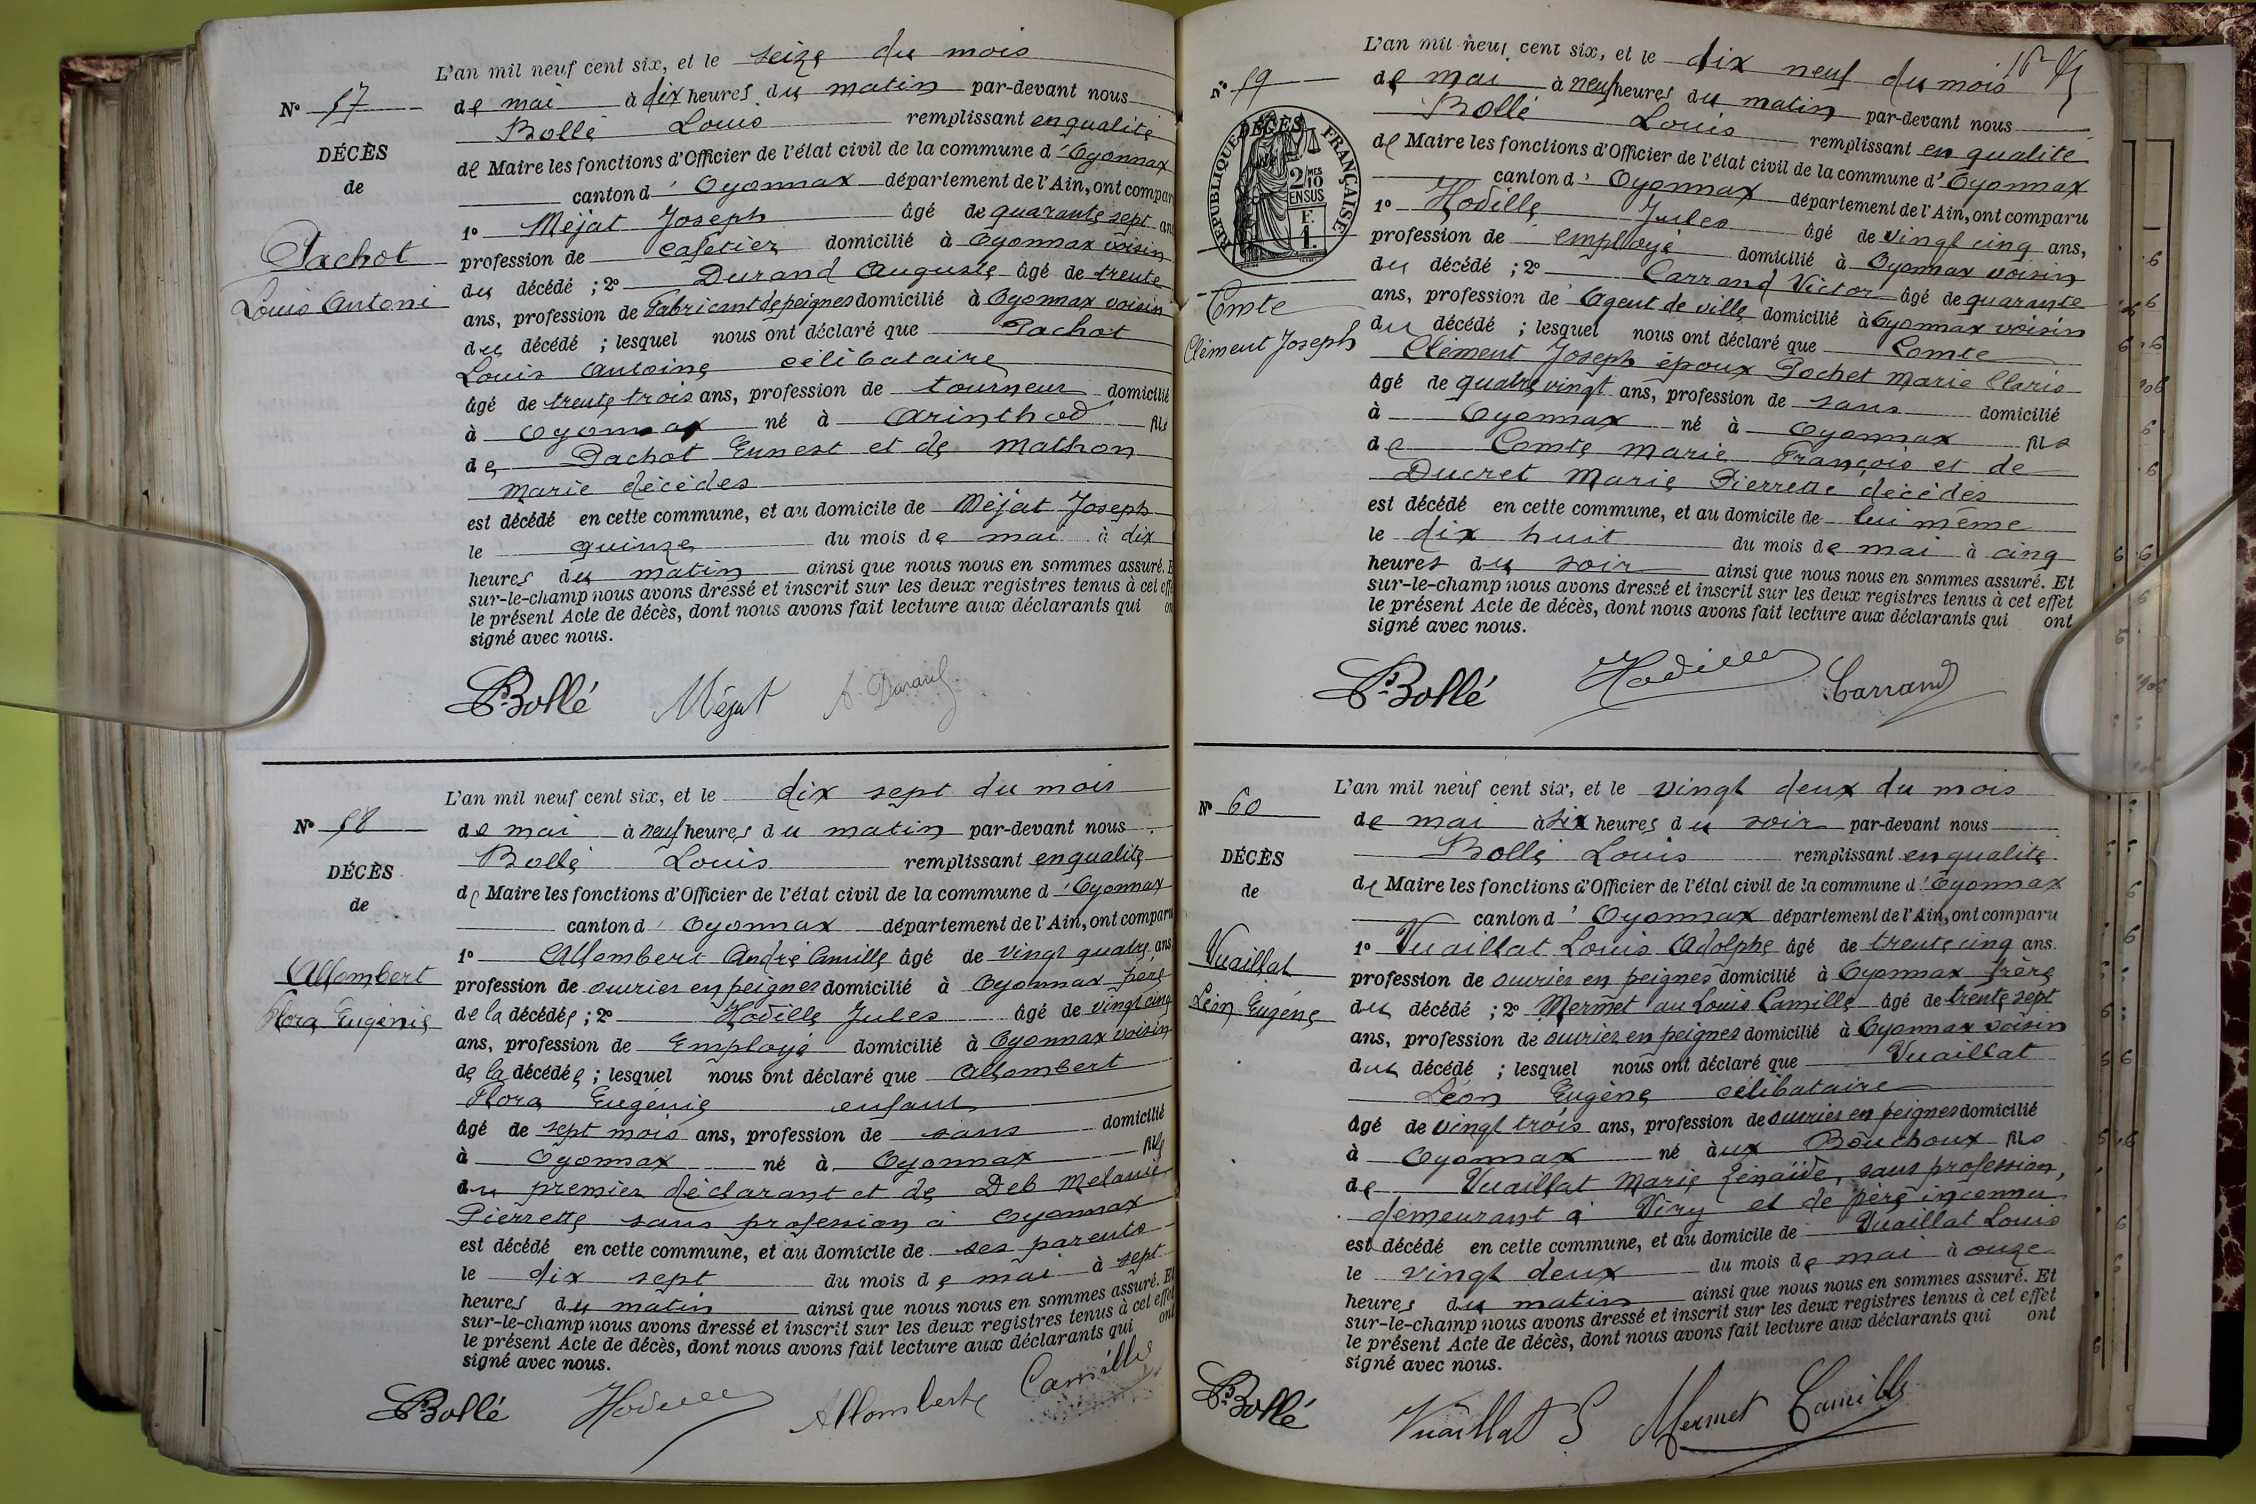 L'an mil neuf cent six, et le seize du mois
N° 57
de mai à dix heures du matin par-devant nous
Bollé Louis remplissant en qualité
DÉCÈS
de Maire les fonctions d'Officier de l'état civil de la commune d'Oyonnax
de
canton d'Oyonnax département de l'Ain, ont compar
1° Méjat Joseph âgé de quarante sept ans
Pachot
profession de cafetier domicilié à Oyonnax voisin
du décédé ; 2° Durand Auguste âgé de trente
Louis Antoni
ans, profession de Fabricant de peignes domicilié à Oyonnax voisin
du décédé ; lesquel nous ont déclaré que Pachot
Louis Antoine célibataire
âgé de trente trois ans, profession de tourneur domicilié
à Oyonnax né à Arinthod fils
de Pachot Ernest et de Mathon
Marie décédés
est décédé en cette commune, et au domicile de Méjat Joseph
le quinze du mois de mai à dix
heures du matin ainsi que nous nous en sommes assuré. E
sur-le-champ nous avons dressé et inscrit sur les deux registres tenus à cet effe
le présent Acte de décès, dont nous avons fait lecture aux déclarants qui on
signé avec nous.
Bollé Méjat A. Durand
L'an mil neuf cent six, et le dix sept du mois
N° 58
de mai à neuf heures du matin par-devant nous
Bollé Louis remplissant en qualité
DÉCÈS
de Maire les fonctions d'Officier de l'état civil de la commune d'Oyonnax
de
canton d'Oyonnax département de l'Ain, ont comparu
1° Allombert André Camille âgé de vingt quatre ans
Allombert
profession de ouvrier en peignes domicilié à Oyonnax père
de la décédée ; 2° Hodille Jules âgé de vingt cinq
Flora Eugénie
ans, profession de Employé domicilié à Oyonnax voisin
de la décédée ; lesquel nous ont déclaré que Allombert
Flora Eugénie enfant
âgé de sept mois ans, profession de sans domicilié
à Oyonnax né à Oyonnax fille
du premier déclarant et de Deb Melanie
Pierrette sans profession à Oyonnax
est décédé en cette commune, et au domicile de ses parents
le dix sept du mois de mai à sept
heures du matin ainsi que nous nous en sommes assuré. Et
sur-le-champ nous avons dressé et inscrit sur les deux registres tenus à cet effet
le présent Acte de décès, dont nous avons fait lecture aux déclarants qui ont
signé avec nous.
Bollé Hodille Allombert Camille
L'an mil neuf cent six, et le dix neuf du mois
N° 59
de mai à neuf heures du matin par-devant nous
Bollé Louis remplissant en qualité
DÉCÈS
RÉPUBLIQUE FRANÇAISE
2/10 MES
EN SUS
F.
1.
de Maire les fonctions d'Officier de l'état civil de la commune d'Oyonnax
canton d'Oyonnax département de l'Ain, ont comparu
1° Hodille Jules âgé de vingt cinq ans,
profession de employé domicilié à Oyonnax voisin
du décédé ; 2° Carrand Victor âgé de quarante
Comte
ans, profession de Agent de ville domicilié à Oyonnax voisin
Clément Joseph
du décédé ; lesquel nous ont déclaré que Comte
Clément Joseph époux Pochet Marie Claris
âgé de quatre vingt ans, profession de sans domicilié
à Oyonnax né à Oyonnax fils
de Comte Marie François et de
Ducret Marie Pierrette décédés
est décédé en cette commune, et au domicile de lui même
le dix huit du mois de mai à cinq
heures du soir ainsi que nous nous en sommes assuré. Et
sur-le-champ nous avons dressé et inscrit sur les deux registres tenus à cet effet
le présent Acte de décès, dont nous avons fait lecture aux déclarants qui ont
signé avec nous.
Bollé Hodille Carrand
L'an mil neuf cent six, et le vingt deux du mois
N° 60
de mai à six heures du soir par-devant nous
Bollé Louis remplissant en qualité
DÉCÈS
de Maire les fonctions d'Officier de l'état civil de la commune d'Oyonnax
de
canton d'Oyonnax département de l'Ain, ont comparu
1° Vuaillat Louis Adolphe âgé de trente cinq ans.
Vuaillat
profession de ouvrier en peignes domicilié à Oyonnax frère
Léon Eugéne
du décédé ; 2° Mermet au Louis Camille âgé de trente sept
ans, profession de ouvrier en peignes domicilié à Oyonnax voisin
du décédé ; lesquel nous ont déclaré que Vuaillat
Léon Eugène célibataire
âgé de vingt trois ans, profession de ouvrier en peignes domicilié
à Oyonnax né aux Bouchoux fils
de Vuaillat Marie Zénaïde, sans profession,
demeurant à Viry et de père inconnu
est décédé en cette commune, et au domicile de Vuaillat Louis
le vingt deux du mois de mai à onze
heures du matin ainsi que nous nous en sommes assuré. Et
sur-le-champ nous avons dressé et inscrit sur les deux registres tenus à cet effet
le présent Acte de décès, dont nous avons fait lecture aux déclarants qui ont
signé avec nous.
Bollé Vuaillat Mermet Camille